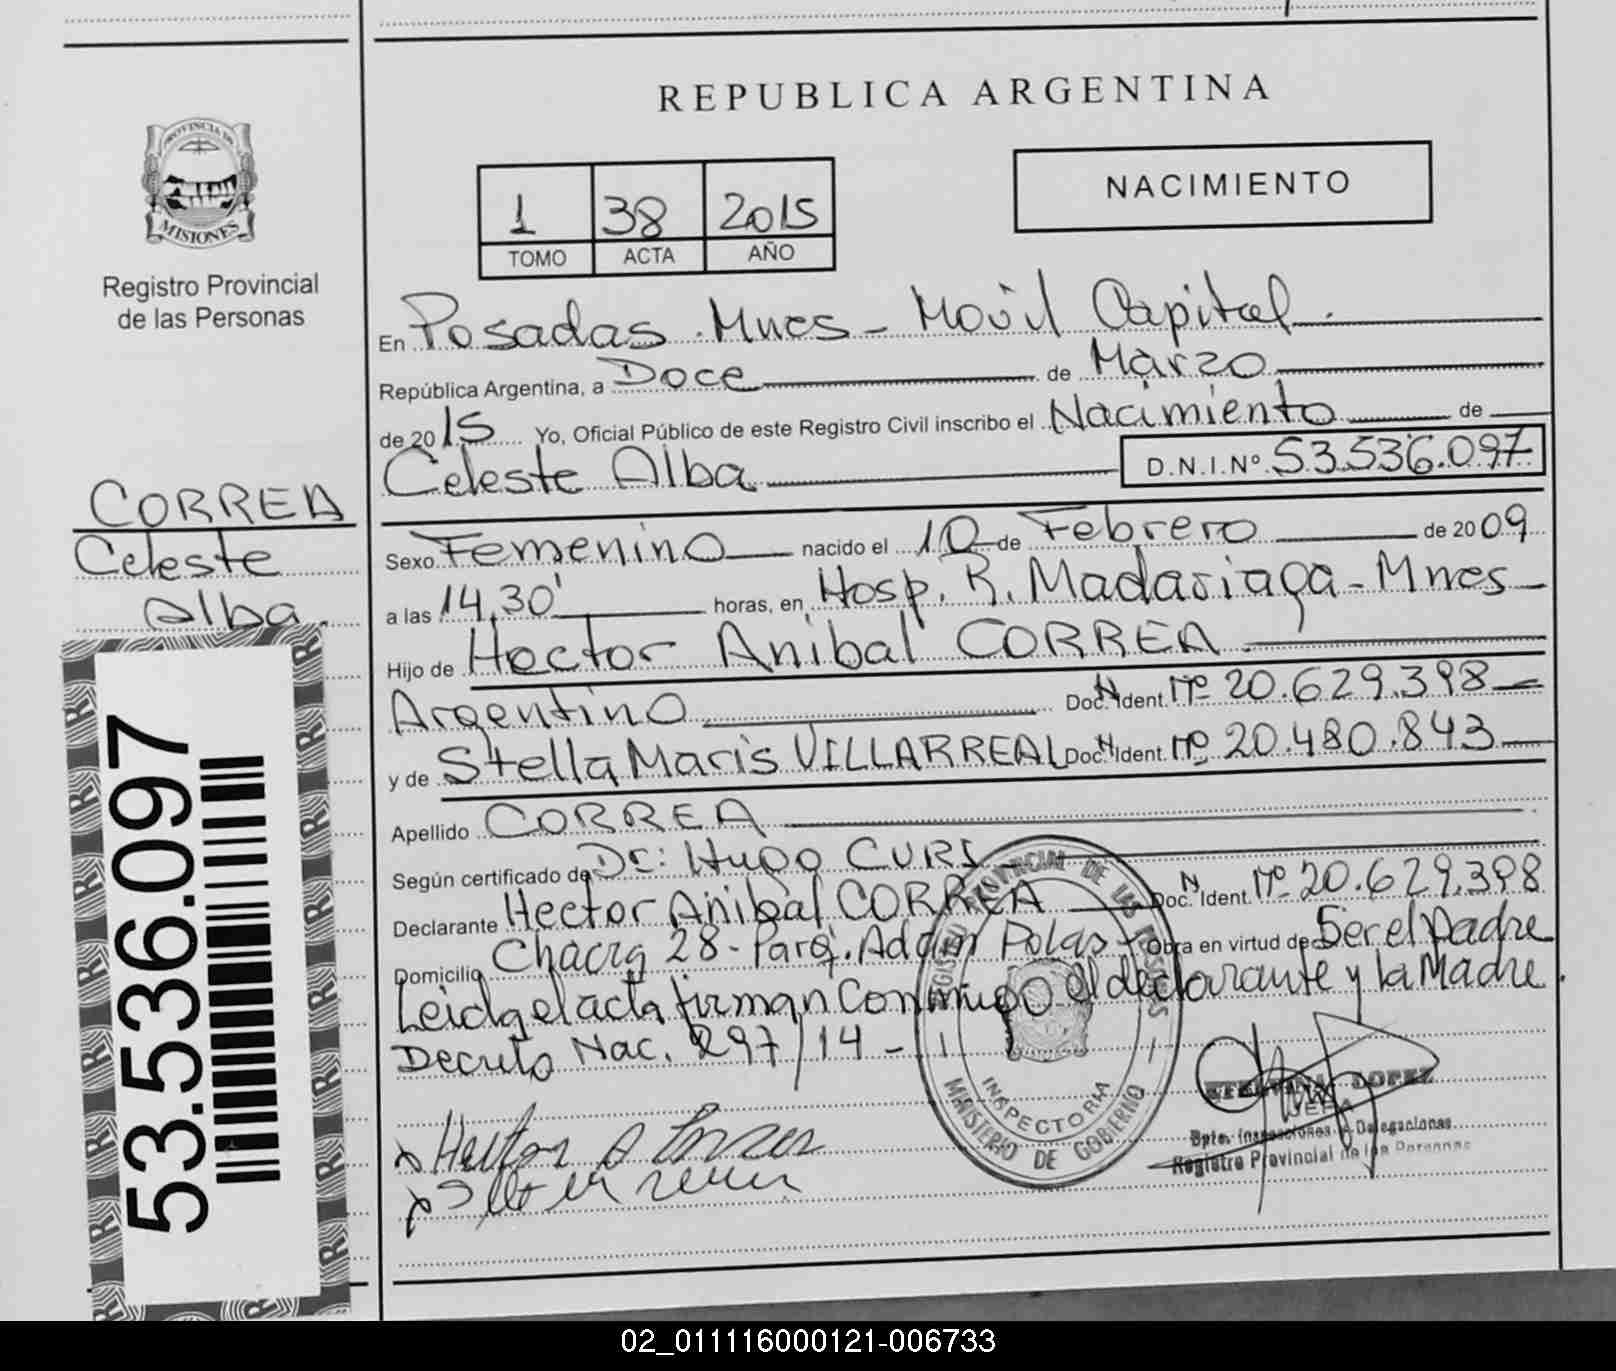 REPUBLICA ARGENTINA
PROVINCIA DE
MISIONES
Registro Provincial
de las Personas
NACIMIENTO
1 38 2015
TOMO ACTA AÑO
En Posadas Mnes - Movil Capital
República Argentina, a Doce de Marzo
de 2015 Yo, Oficial Público de este Registro Civil inscribo el Nacimiento de
Celeste Alba D.N.I.Nº 53.536.097
CORREA
Celeste
Alba
Sexo Femenino nacido el 10 de Febrero de 2009
a las 14,30' horas, en Hosp. R. Madariaga - Mnes
Hijo de Hector Anibal CORREA
Argentino Doc. N Ident. Nº 20.629.398
y de Stella Maris VILLARREAL Doc. N Ident. Nº 20.480.843
Apellido CORREA
Según certificado de Dr: Hugo CURI
Declarante Hector Anibal CORREA Doc. N Ident. Nº 20.629.398
Domicilio Chacra 28 - Parq. Adam Polas Obra en virtud de Ser el Padre
Leida el acta firman Conmigo el declarante y la Madre.
Decreto Nac. 297/14 -
53.536.097
REGISTRO PROVINCIAL DE LAS PERSONAS
INSPECTORIA
MINISTERIO DE GOBIERNO
LOPEZ
JEFA
Dpto. Inspecciones y Delegaciones
Registro Provincial de las Personas
02_011116000121-006733